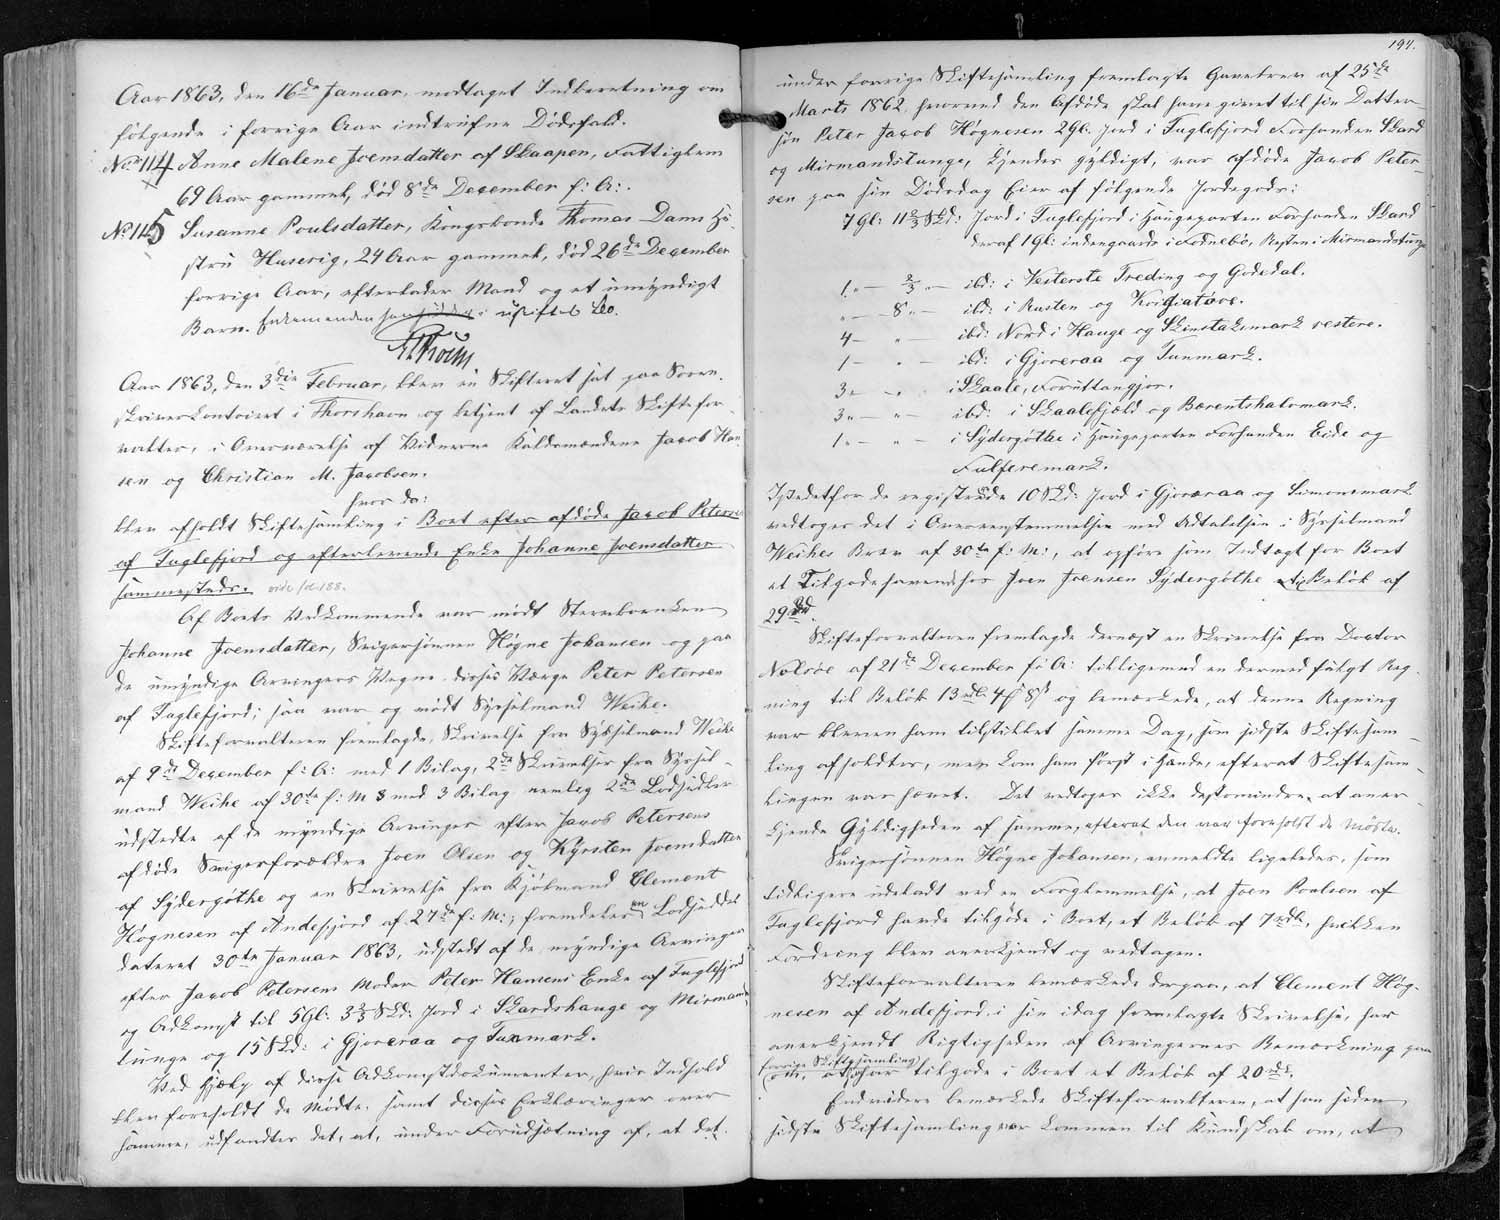 Aar 1863, den 16de Januar, modtaget Indberetning om
følgende i forrige Aar indtrufne Dødsfald.
No 114 Anne Malene Joensdatter af Skaapen, Fattiglem
69 Aar gammel, død 8de December f: A:.
No 115 Susanne Poulsdatter, Kongsbonde Thomas Dams Hu-
stru Huserig, 24 Aar gammel, død 26de December
forrige Aar, efterlader Mand og et umyndigt
Barn. Enkemanden i uskiftet Bo.
Aar 1863, den 3die Februar, blev en Skifteret sat paa Soren-
skriverkontoiret i Thorshavn og betjent af Landets Skiftefor-
valter, i Overværelse af Vidnerne Kaldsmændene Jacob Han-
sen og Christian M. Jacobsen.
hvor da:
blev afholdt Skiftesamling i Boet efter afdøde Jacob Petersen
af Fuglefjord og efterlevende Enke Johanne Joensdatter
sammesteds. vide fol. 188.
Af Boets Vedkommende var mødt Stervboenken
Johanne Joensdatter, Svigersønnen Høgne Johansen og paa
de umyndige Arvingers Vegne disses Værge Peter Petersen
af Fuglefjord; saa var og mødt Sysselmand Weihe.
Skifteforvalteren fremlagde, Skrivelse fra Sysselmand Weihe
af 9de December f: A: med 1 Bilag, 2de Skrivelser fra Syssel-
mand Weihe af 30te f: M: med 3 Bilag nemlig 2de Lodsedler
udstedte af de myndige Arvinger efter Jacob Petersens
afdøde Svigerforældre Joen Olsen og Kyrsten Joensdatter
af Sydergøthe og en Skrivelse fra Kjøbmand Clement
Høgnesen af Andefjord af 27de f: M:; fremdeles en Lodseddel
dateret 30te Januar 1863, udstedt af de myndige Arvinger
efter Jacob Petersens Moder Peter Hansens Enke af Fuglefjord
og Adkomst til 5Gl: 3 2/3 Skd: Jord i Skardshauge og Mirmands-
tunge og 15 Skd: i Gjoveraa og Tunmark.
Ved Hjælp af disse Adkomstdokumenter, hvis Indhold
blev foreholdt de Mødte, samt disses Erklæringer over
samme, udfandtes det, at, under Forudsætning af, at det
194.
under forrige Skiftesamling fremlagte Gavebrev af 25de
Marts 1862, hvorved den Afdøde skal have givet til sin Datter-
søn Peter Jacob Høgnesen 2Gl. Jord i Fuglefjord Forhanden Skard
og Mirmandstunge, kjendes gyldigt, var afdøde Jacob Peter-
sen paa sin Dødsdag Eier af følgende Jordegods:
7 Gl: 11 2/3 Skd: Jord i Fuglefjord i Haugeparten Forhanden Skard
deraf 1Gl: indengaards i Fodnebø, Resten i Mirmandstunge
1 "— 2/3 "— ibd: i Vesterste Treding og Godedal.
"— 8 "— ibd: i Rusten og Krigiatøve.
4 — " — ibd: Nord i Hauge og Skinstaksmark vestere.
1 — " — ibd: i Gjoveraa og Tunmark.
3 " — " i Skaale, Foruttangjor.
3 " — " — ibd: i Skaalefjæld og Bærentshalsmark.
1 " — " — i Sydergøthe i Haugeparten Forhanden Eide og
Fulferemark.
Istedetfor de registrerede 10 Skd: Jord i Gjoveraa og Simonsmark
vedtoges det i Overensstemmelse med Udtalelsen i Sysselmand
Weihes Brev af 30te f: M:, at opføre som Indtægt for Boet
et Tilgodehavende hos Joen Joensen Sydergøthe til Beløb af
29rd.
Skifteforvalteren fremlagde dernæst en Skrivelse fra Doctor
Nolsøe af 21de December f: A: tilligemed en dermed fulgt Reg-
ning til Beløb 13 rdl. 4 ₰ 8 s og bemærkede, at denne Regning
var bleven ham tilstillet samme Dag, som sidste Skiftesam-
ling afholdtes, men kom ham først i Hænde, efterat Skiftesam-
lingen var hævet. Det vedtoges ikke destomindre at aner-
kjende Gyldigheden af samme, efterat den var foreholdt de Mødte.
Svigersønnen Høgne Johansen, anmeldte ligeledes, som
tidligere udeladt ved en Forglemmelse, at Joen Poulsen af
Fuglefjord havde tilgode i Boet, et Beløb af 7 rdl., hvilken
Fordring blev anerkjendt og vedtagen.
Skifteforvalteren bemærkede derpaa, at Clement Høg-
nesen af Andefjord, i sin idag fremlagte Skrivelse, har
anerkjendt Rigtigheden af Arvingernes Bemærkning paa
forrige Skiftesamling
om, at han har tilgode i Boet et Beløb af 20 rdl.
Endvidere bemærkede Skifteforvalteren, at han siden
sidste Skiftesamling var kommen til Kundskab om, at